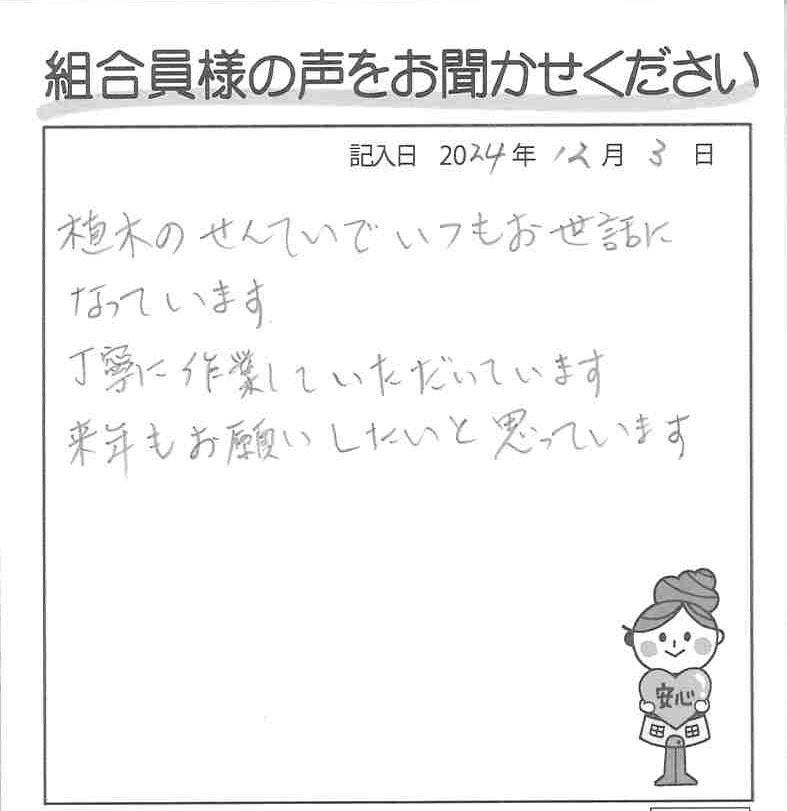 組合員様の声をお聞かせください
記入日 2024年 12月 3日
植木のせんていでいつもお世話に
なっています
丁寧に作業していただいています
来年もお願いしたいと思っています
安心